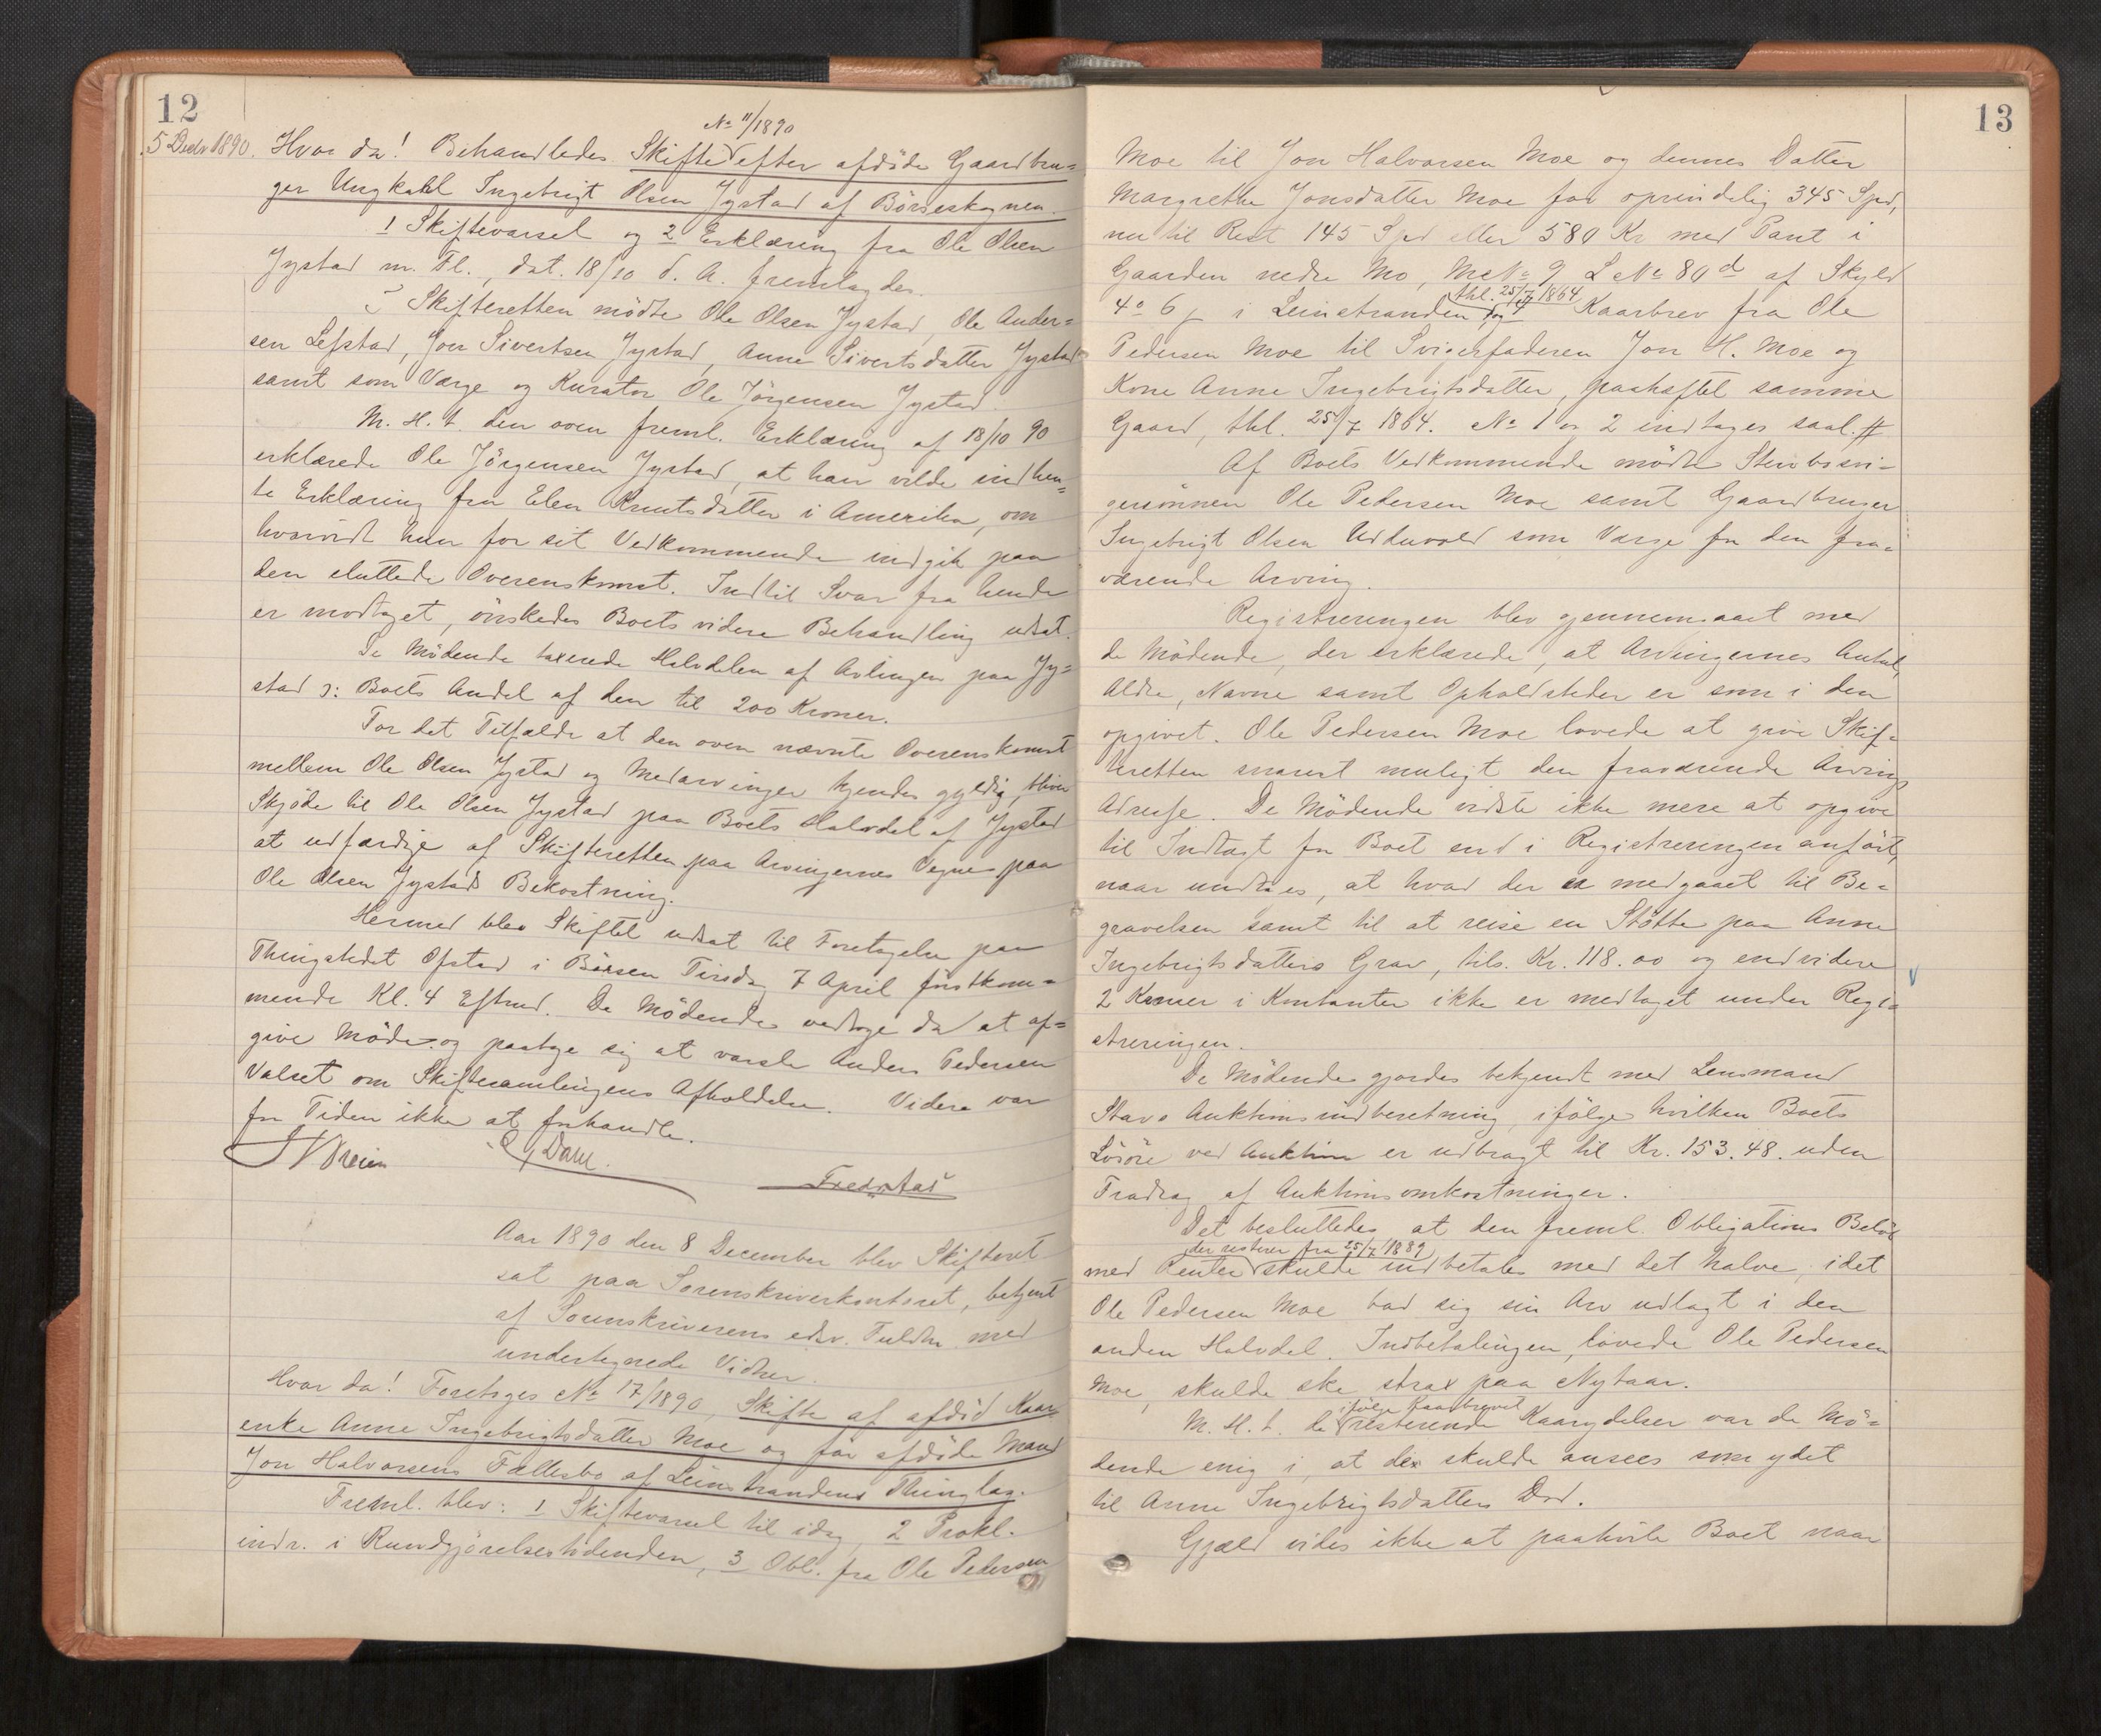 12
No 11/1890
5 Decbr 1890. Hvor da! Behandledes Skifte efter afdöde Gaardbru=
ger Ungkarl Ingebrigt Olsen Jystad af Börseskognen.
1 Skiftevarsel og 2 Erklæring fra Ole Olsen
Jystad m. Fl., dat. 18/10 d. A. fremlagdes.
I Skifteretten mödte Ole Olsen Jystad, Ole Ander=
sen Lefstad, Jon Sivertsen Jystad, Anne Sivertsdatter Jystad
samt som Værge og Kurator Ole Jörgensen Jystad.
M. H. t. den oven freml. Erklæring af 18/10 90
erklærede Ole Jörgensen Jystad, at han vilde indhen=
te Erklæring fra Elen Knutsdatter i Amerika, om
hvorvidt hun for sit Vedkommende indgik paa
den sluttede Overenskomst. Indtil Svar fra hende
er modtaget, önskedes Boets videre Behandling udsat.
De Mödende taxerede Halvdelen af Avlingen paa Jy=
stad ɔ: Boets Andel af den til 200 Kroner.
For det Tilfælde at den oven nævnte Overenskomst
mellem Ole Olsen Jystad og Medarvinger kjendes gyldig, bliver
Skjöde til Ole Olsen Jystad paa Boets Halvdel af Jystad
at udfærdige af Skifteretten paa Arvingernes Vegne paa
Ole Olsen Jystads Bekostning.
Hermed blev Skiftet udsat til Foretagelse paa
Thingstedet Ofstad i Börsen Tirsdag 7 April förstkom=
mende Kl. 4 Eftmd. De Mödende vedtoge da at af=
give Möde og paatoge sig at varsle Anders Pedersen
Valset om Skiftesamlingens Afholdelse. Videre var
for Tiden ikke at forhandle.
Dahl.
Fredstad
Aar 1890 den 8 December blev Skifteret
sat paa Sorenskriverkontoret, betjent
af Sorenskriverens edsv. Fuldm. med
undertegnede Vidner.
Hvor da! Foretoges No 17/1890, Skifte af afdöd Kaar
enke Anne Ingebrigtsdatter Moe og för afdöde Mand
Jon Halvorsens Fællesbo af Leinstrandens Thinglag.
Freml. blev: 1 Skiftevarsel til idag, 2 Prokl.
indr. i Kundgjörelsestidenden, 3 Obl. fra Ole Pedersen
13
Moe til Jon Halvorsen Moe og dennes Datter
Margrethe Jonsdatter Moe for oprindelig 345 Spd,
nu til Rest 145 Spd eller 580 Kr med Pant i
Gaarden nedre Mo, M No 9 L No 80 d af Skyld
thl. 25/7 1864
4 o 6 i Leinstranden, og 4 Kaarbrev fra Ole
Pedersen Moe til Svigerfaderen Jon H. Moe og
Kone Anne Ingebrigtsdatter, paaheftet samme
Gaard, thl. 25/7 1864. No 1 og 2 indtages saal. #
Af Boets Vedkommende mödte Stervbosvi=
gersönnen Ole Pedersen Moe samt Gaardbruger
Ingebrigt Olsen Udduvold som Værge for den fra=
værende Arving.
Registreringen blev gjennemgaaet med
de Mödende, der erklærede, at Arvingernes Antal,
Alder, Navne samt Opholdsteder er som i den
opgivet. Ole Pedersen Moe lovede at give Skif=
teretten snarest muligt den fraværende Arvings
Adresse. De Mödende vidste ikke mere at opgive
til Indtægt for Boet end i Registreringen anfört,
naar undtages, at hvad der er medgaaet til Be=
gravelsen samt til at reise en Stötte paa Anne
Ingebrigtsdatters Grav, tils. Kr. 118.00 og endvidere
2 Kroner i Kontanter ikke er medtaget under Regi=
streringen.
De Mödende gjordes bekjendt med Lensmand
Stavs Auktionsindberetning, ifölge hvilken Boets
Lösöre ved Auktion er udbragt til Kr. 153.48. uden
Fradrag af Auktionsomkostninger.
Det besluttedes at den freml. Obligations Belöb
der resterer fra 25/7 1889
med Renter skulde indbetales med det halve, idet
Ole Pedersen Moe bad sig sin Arv udlagt i den
anden Halvdel. Indbetalingen, lovede Ole Pedersen
Moe, skulde ske strax paa Nytaar.
ifölge Kaarbrevet
M. H. t. de resterende Kaarydelser var de Mö=
dende enig i, at de skulde ansees som ydet
til Anne Ingebrigtsdatters Död.
Gjæld vides ikke at paahvile Boet naar